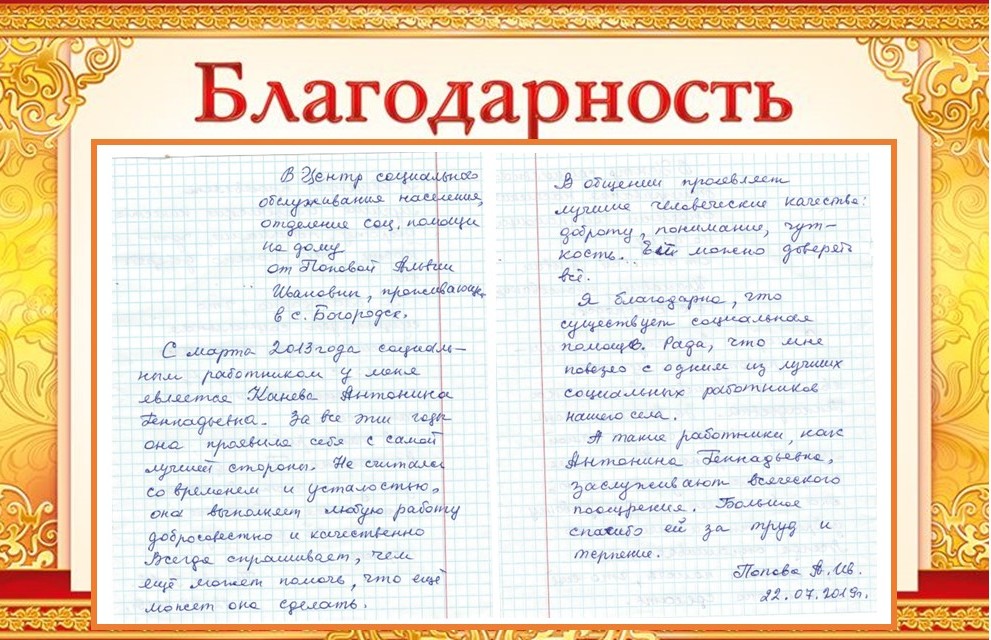 Благодарность
В Центр социального
обслуживания населения,
отделение соц. помощи
на дому
от Поповой Альвии
Ивановны, проживающ.
в с. Богородск.
С марта 2013 года социаль-
ным работником у меня
является Канева Антонина
Геннадьевна. За все эти годы
она проявила себя с самой
лучшей стороны. Не считаясь
со временем и усталостью,
она выполняет любую работу
добросовестно и качественно
Всегда спрашивает, чем
ещё может помочь, что ещё
может она сделать.
В общении проявляет
лучшие человеческие качества:
доброту, понимание, чут-
кость. Ей можно доверять
всё.
Я благодарна, что
существует социальная
помощь. Рада, что мне
повезло с одним из лучших
социальных работников
нашего села.
А такие работники, как
Антонина Геннадьевна,
заслуживают всяческого
поощрения. Большое
спасибо ей за труд и
терпение.
Попова А. Ив.
22.07.2019г.